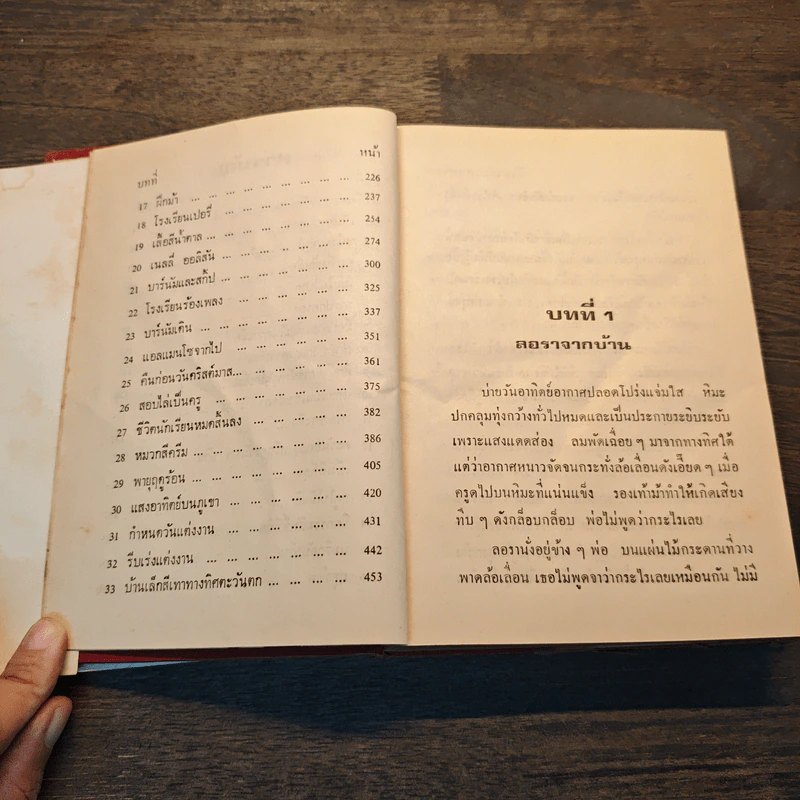 บทที่ หน้า
17 ฝึกม้า ... ... ... ... ... ... ... ... 226
18 โรงเรียนเปอรี่ ... ... ... ... ... ... 237
19 เสื้อสีน้ำตาล ... ... ... ... ... ... ... 254
20 เนลลี่ ออลิสัน ... ... ... ... ... ... 274
21 บาร์นัมและสกิ๊ป ... ... ... ... ... ... 300
22 โรงเรียนร้องเพลง ... ... ... ... ... 325
23 บาร์นัมเดิน ... ... ... ... ... ... ... 337
24 แอลแมนโซจากไป ... ... ... ... ... 351
25 คืนก่อนวันคริสต์มาส... ... ... ... ... 361
26 สอบไล่เป็นครู ... ... ... ... ... ... 375
27 ชีวิตนักเรียนหมดสิ้นลง ... ... ... ... 382
28 หมวกสีครีม ... ... ... ... ... ... ... 386
29 พายุฤดูร้อน ... ... ... ... ... ... ... 405
30 แสงอาทิตย์บนภูเขา ... ... ... ... ... 420
31 กำหนดวันแต่งงาน ... ... ... ... ... 431
32 รีบเร่งแต่งงาน ... ... ... ... ... ... 442
33 บ้านเล็กสีเทาทางทิศตะวันตก ... ... ... ... 453
บทที่ 1
ลอราจากบ้าน
บ่ายวันอาทิตย์อากาศปลอดโปร่งแจ่มใส หิมะ
ปกคลุมทุ่งกว้างทั่วไปหมดและเป็นประกายระยิบระยับ
เพราะแสงแดดส่อง ลมพัดเฉื่อย ๆ มาจากทางทิศใต้
แต่ว่าอากาศหนาวจัดจนกระทั่งล้อเลื่อนดังเอี๊ยด ๆ เมื่อ
ครูดไปบนหิมะที่แน่นแข็ง รองเท้าม้าทำให้เกิดเสียง
ทึบ ๆ ดังกล็อบกล็อบ พ่อไม่พูดว่ากระไรเลย
ลอรานั่งอยู่ข้าง ๆ พ่อ บนแผ่นไม้กระดานที่วาง
พาดล้อเลื่อน เธอไม่พูดจาว่ากระไรเลยเหมือนกัน ไม่มี